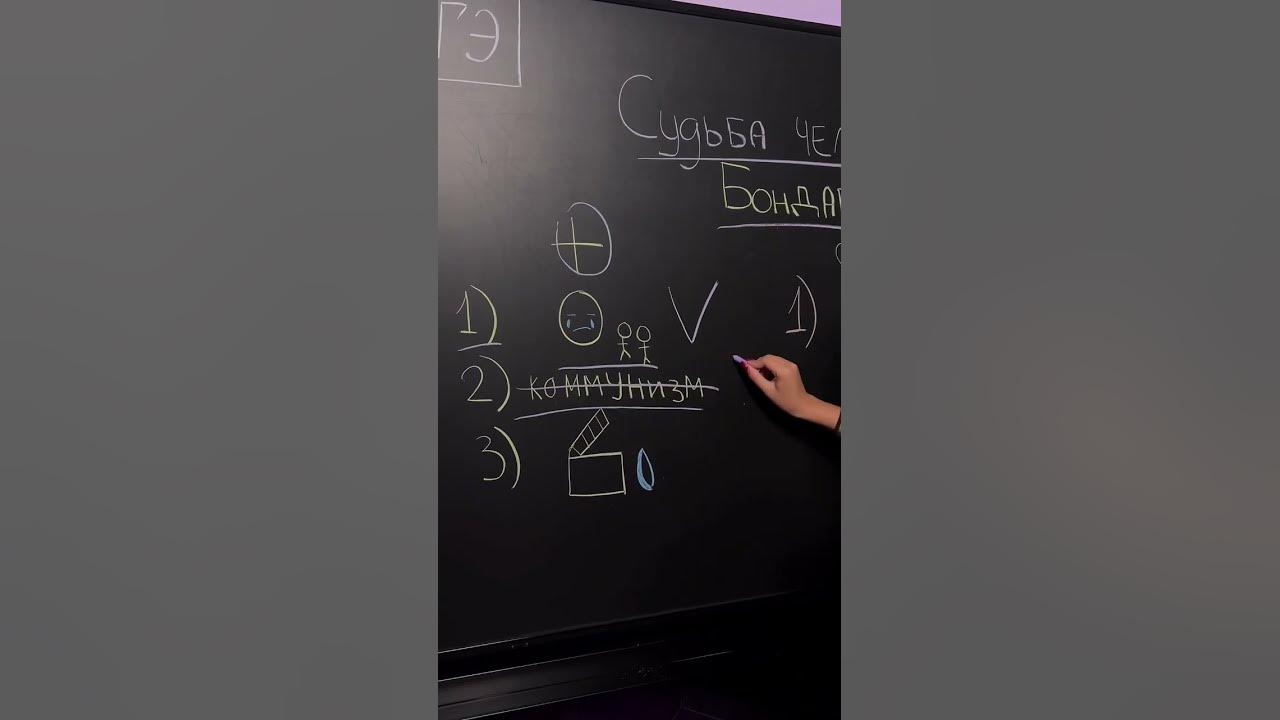 ГЭ
Судьба чел
Бондар
1)
1)
2) коммунизм
3)